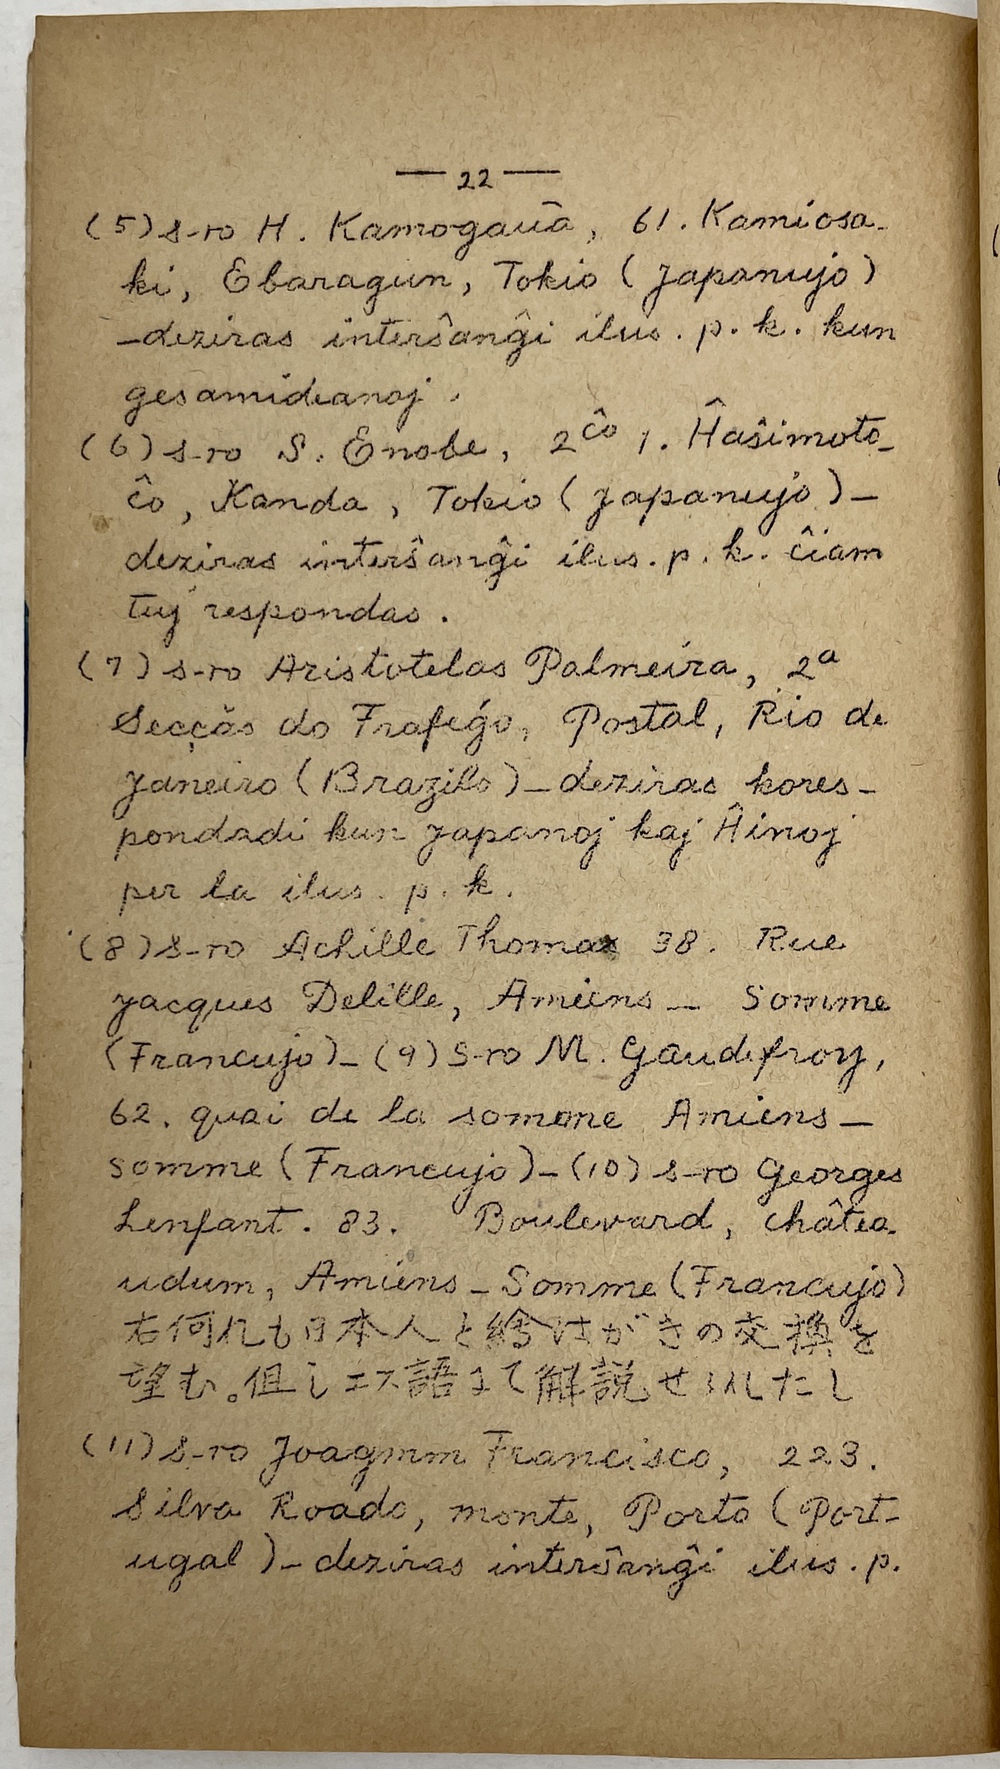 — 22 —
(5) s-ro H. Kamogaŭa, 61. Kamiosa-
ki, Ebaragun, Tokio (Japanujo)
-deziras interŝanĝi ilus. p. k. kun
gesamideanoj.
(6) s-ro S. Enobe, 2ĉo 1. Ĥaŝimoto-
ĉo, Kanda, Tokio (Japanujo)-
deziras interŝanĝi ilus. p. k. ĉiam
tuj respondas.
(7) s-ro Aristotelas Palmeira, 2a
Secçăs do Trafeǵo, Postal, Rio de
Janeiro (Brazilo)-deziras kores-
pondadi kun Japanoj kaj Ĥinoj
per la ilus. p. k.
(8) s-ro Achille Thomas 38. Rue
Jacques Delille, Amiens - Somme
(Francujo)- (9) S-ro M. Gaudefroy,
62. quai de la somme Amiens-
somme (Francujo)-(10) s-ro Georges
Lenfant. 83. Boulevard, châtea-
udum, Amiens-Somme (Francujo)
右何れも日本人と絵はがきの交換を
望む。但しエス語にて解説せられたし
(11) s-ro Joagmm Francisco, 223.
Silva Roado, monte, Porto (Port-
ugal)-deziras interŝanĝi ilus. p.